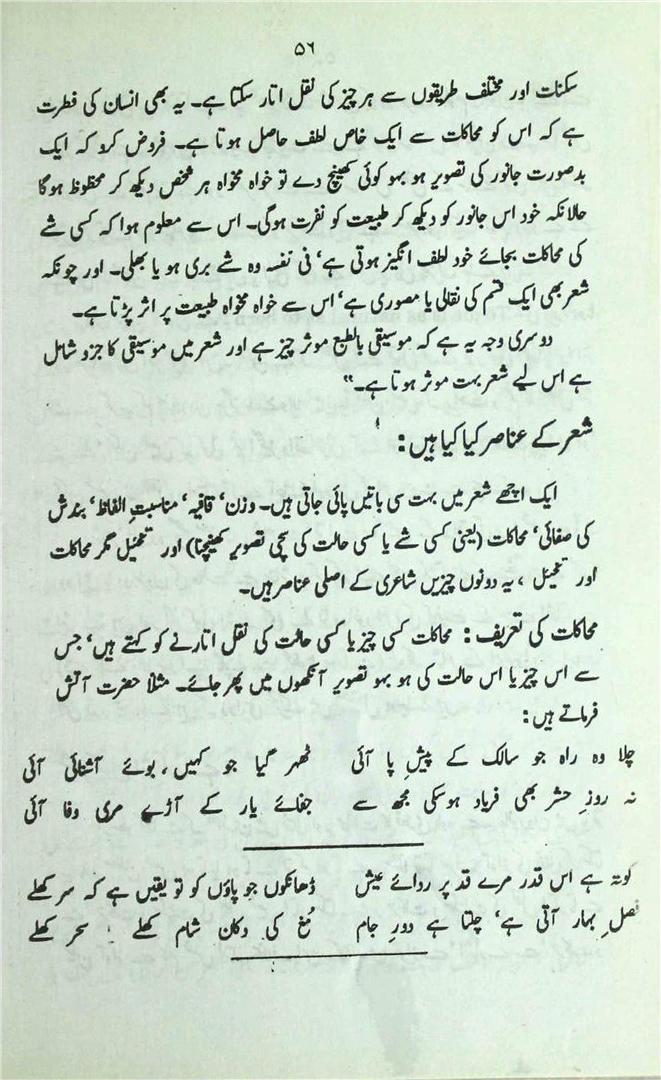 ۵۶
سکنات اور مختلف طریقوں سے ہر چیز کی نقل اتار سکتا ہے۔ یہ بھی انسان کی فطرت
ہے کہ اس کو محاکات سے ایک خاص لطف حاصل ہوتا ہے۔ فروض کرلا کہ ایک
بدصورت جانور کی تصویر ہو بہو کوئی کھینچ دے تو خواہ مخواہ ہر شخص دیکھ کر محظوظ ہوگا
حالانکہ خود اس جانور کو دیکھ کر طبیعت کو نفرت ہوگی۔ اس سے معلوم ہوا کہ کسی شے
کی محاکات بجائے خود لطف انگیز ہوتی ہے‘ فی نفسہ وہ شے بری ہو یا بھلی۔ اور چونکہ
شعر بھی ایک قسم کی نقالی یا مصوری ہے‘ اس سے خواہ مخواہ طبیعت پر اثر پڑتا ہے۔
دوسری وجہ یہ ہے کہ موسیقی بالطبع موثر چیز ہے اور شعر میں موسیقی کا جزو شامل
ہے اس لیے شعر بہت موثر ہوتا ہے۔“
شعر کے عناصر کیا کیا ہیں:
ایک اچھے شعر میں بہت سی باتیں پائی جاتی ہیں۔ وزن‘ قافیہ‘ مناسبتِ الفاظ‘ بندش
کی صفائی‘ محاکات (یعنی کسی شے یا کسی حالت کی سچی تصویر کھینچنا) اور تخیل مگر محاکات
اور تخیل ، یہ دونوں چیزیں شاعری کے اصلی عناصر ہیں۔
محاکات کی تعریف: محاکات کسی چیز یا کسی حالت کی نقل اتارنے کو کہتے ہیں‘ جس
سے اس چیز یا اس حالت کی ہو بہو تصویر آنکھوں میں پھر جائے۔ مثلاً حضرت آتش
فرماتے ہیں:
چلا وہ راہ جو سالک کے پیشِ پا آئی ٹھہر گیا جو کہیں، بوئے آشنائی آئی
نہ روزِ حشر بھی فریاد ہوسکی مجھ سے جفائے یار کے آڑے مری وفا آئی
کوتہ ہے اس قدر مرے قد پر ردائے عیش ڈھانکوں جو پاؤں کو تو یقیں ہے کہ سر کھلے
فصلِ بہار آتی ہے‘ چلتا ہے دورِ جام مُغ کی دکان شام کھلے ، سحر کھلے